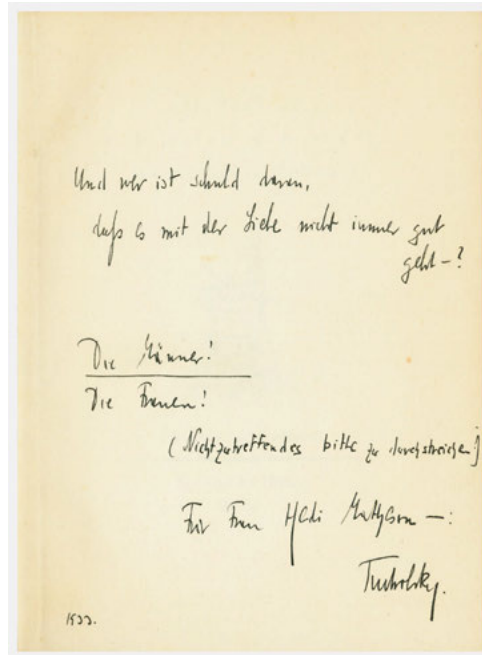 Und wer ist schuld daran,
daß es mit der Liebe nicht immer gut
geht –?
Die Männer!
Die Frauen!
(Nichtzutreffendes bitte zu durchstreichen!)
Für Frau Hedi
Tucholsky.
1933.